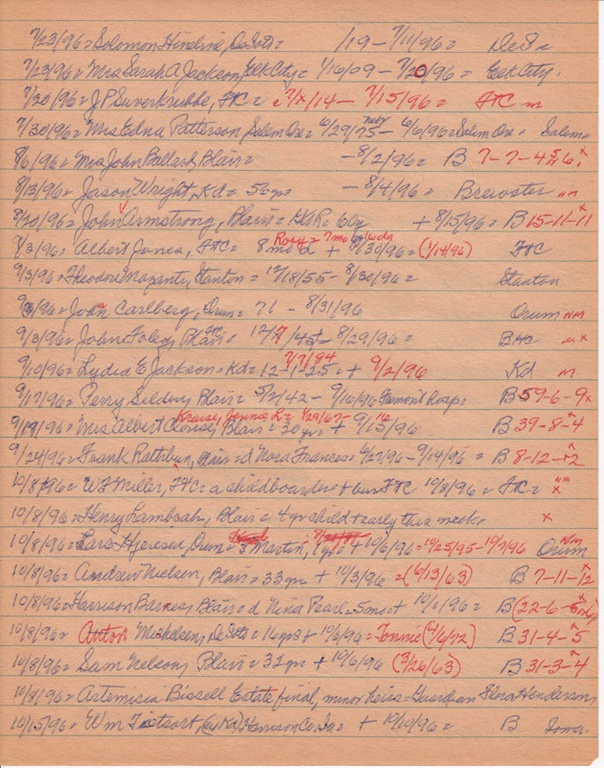 7/23/96 = Solomon Hindine, DeSoto = 1/19 - 7/11/96 = DeSo
7/23/96 = Mrs Sarah A Jackson, Elk City = 1/16/09 - 7/20/96 = Elk City.
7/30/96 = J P Suverkrubbe, FtC = 7/x/14 - 7/15/96 = FtC m
7/30/96 = Mrs Edna Patterson, Salem Ore = 6/29/75 - 6/6/96 = Salem Ore = Salem
8/6/96 = Mrs John Ballard, Blair = - 8/2/96 = B 7-7-4
8/13/96 = Jason Wright, Kd = 56 yr - 8/4/96 = Brewster nm
8/20/96 = John Armstrong, Blair = 60y + 8/15/96 = B 15-11-11 x
9/3/96 = Albert Jones, FtC = 8 mo d + 8/30/96 = (1/14/96) FtC
9/3/96 = Theodore Maganty, Stanton = 12/18/55 - 8/30/96 = Stanton
9/3/96 = John Carlberg, Orum = 71 - 8/31/96 Orum nm
9/3/96 = John Foley, Blair = 12/7/45 - 8/29/96 =
9/10/96 = Lydia E Jackson = Kd = 12-1-25 = + 9/2/96 Kd m
9/17/96 = Perry Selden, Blair = 5/2/42 - 9/10/96 Fremont Hosp = B 59-6-9 x
9/19/96 = Mrs Albert Clausen, Blair = 30 yr + 9/15/96 B 39-8-4 x
9/24/96 = Frank Rathbun, Blair = d Nora Frances = 6/27/96 - 9/14/96 = B 8-12-2
10/8/96 = W F Miller, FtC = a childboarder + bur FtC 10/8/96 = FtC x
10/8/96 = Henry Lambsah, Blair = 4 yr child + early this week, x
10/8/96 = Lars Hjeresen, Orum = Martin, 1 yr + 10/6/96 = 10/25/95 - 10/7/96 Orum nm
10/8/96 = Andrew Nielsen, Blair = 33 yr + 10/3/96 = (6/13/63) B 7-11-12 x
10/8/96 = Harrison Barnes, Blair = d Nina Pearl = 5 mos + 10/1/96 = B (22-6-
10/8/96 = Anton Michelsen, DeSoto = 16 yrs + 10/6/96 = Tonnie (4/6/72) B 31-4-5 x
10/8/96 = Sam Nelson, Blair = 32 yr + 10/6/96 (3/26/63) B 31-3-4 x
10/8/96 = Artemisia Bissell Estate final, minor heirs = Guardian Flora Henderson
10/15/96 = Wm Harrison Co Ia = + 10/10/96 = B Iowa.